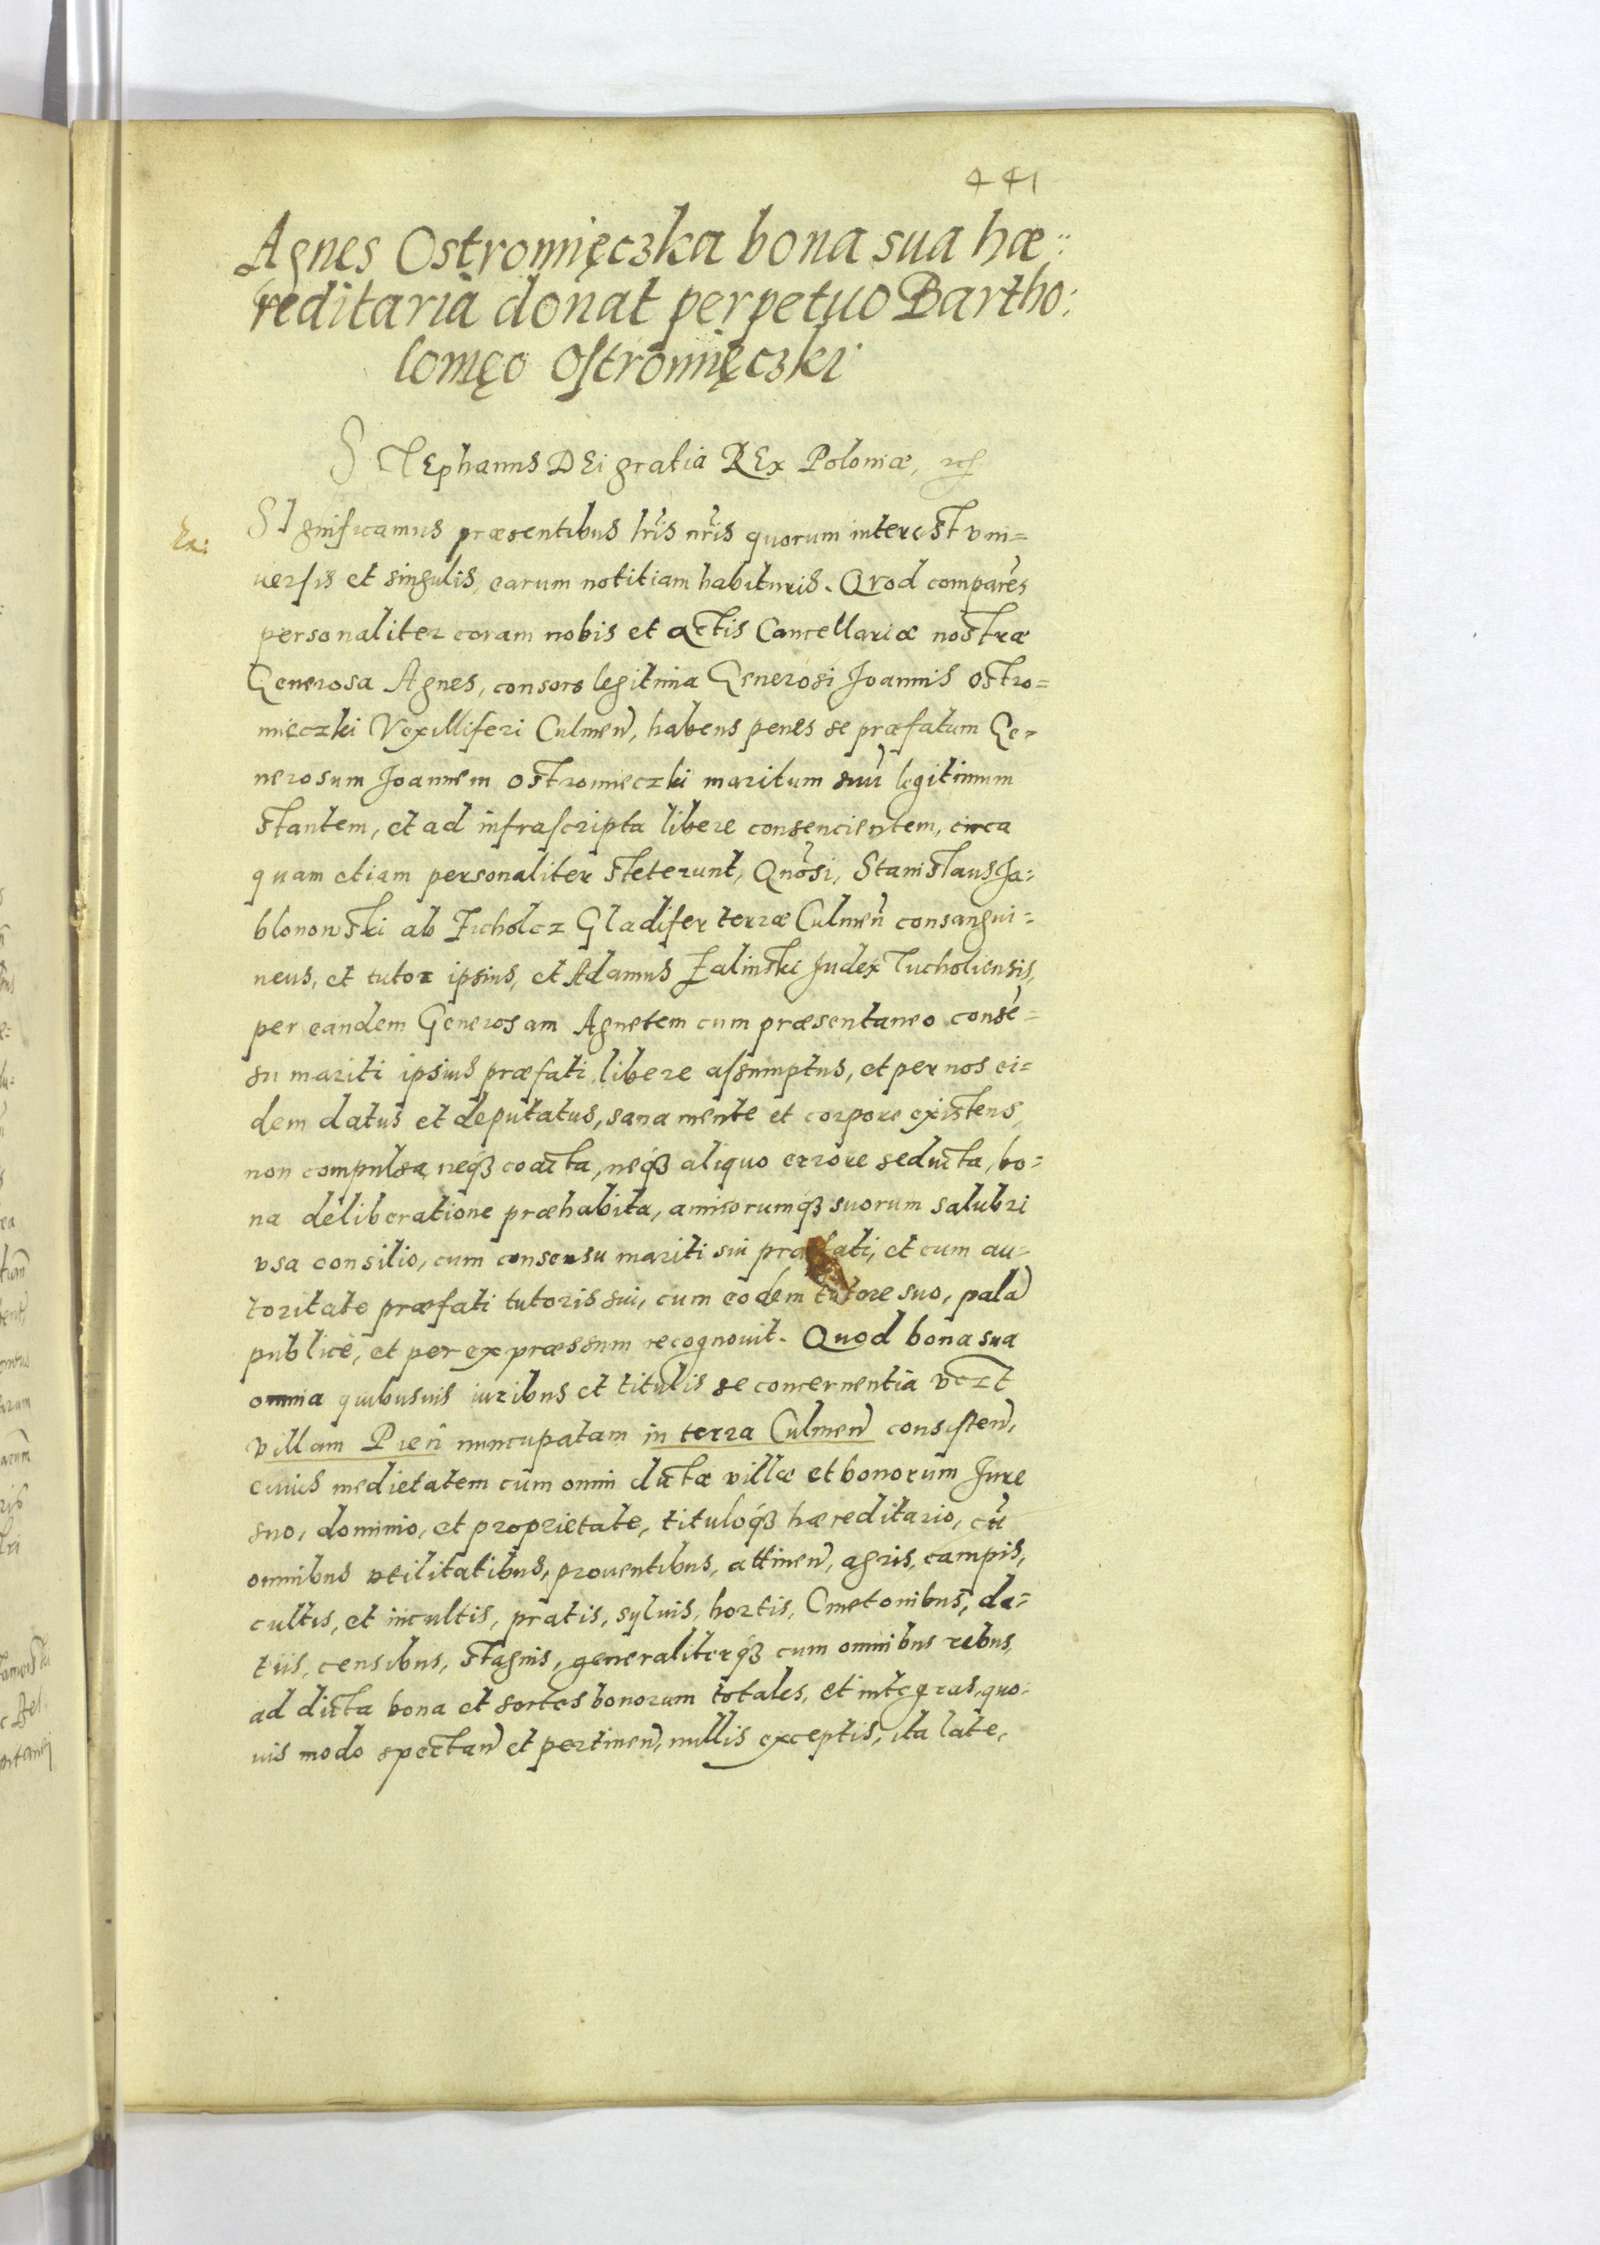 441
Agnes Ostromięczka bona sua hæ:
reditaria donat perpetuo Bartho:
lomęo Ostromięczki
STEphanus DEi gratia REx Poloniæ,
SIgnificamus præsentibus lris nris quorum interest vni=
uersis et singulis, earum notitiam habituris. Qvod compares
personaliter coram nobis et actis Cancellariæ nostræ
Generosa Agnes, consors legitima Generosi Joannis Ostro=
mieczki Vexilliferi Culmen, habens penes se præfatum Ge=
nerosum Joannem Ostromieczki maritum suũ legitimum
stantem, et ad infrascripta libere consencientem, circa
quam etiam personaliter steterunt, Gnosi, Stanislaus Ja=
blonowski ab Gladifer terræ Culmen consangui=
neus, et tutor ipsius, et Adamus Zalinski Judex Tucholiensis,
per eandem Generosam Agnetem cum præsentaneo conse=
su mariti ipsius præfati libere assumptus, et per nos ei=
dem datus et deputatus, sana mente et corpore existens,
non compulsa neqз coacta, neqз aliquo errore seducta, bo=
na deliberatione præhabita, amicorumqз suorum salubri
vsa consilio, cum consensu mariti sui præfati, et cum au=
toritate præfati tutoris sui, cum eodem tutore suo, palã
publice, et per expræssum recognouit. Quod bona sua
omnia quibusuis iuribus et titulis se concernentia vczt
villam Pień nuncupatam in terra Culmen consisten,
cuius medietatem cum omni dictæ villæ et bonorum Jure
suo, dominio, et proprietate, tituloqз hæreditario, cũ
omnibus vtilitatibus, prouentibus, attinen, agris, campis,
cultis, et incultis, pratis, syluis, hortis, Cmetonibus, da=
tiis, censibus, stagnis, generaliterqз cum omnibus rebus,
ad dicta bona et sortes bonorum totales, et integras, quo=
uis modo spectan et pertinen, nullis exceptis, ita late,